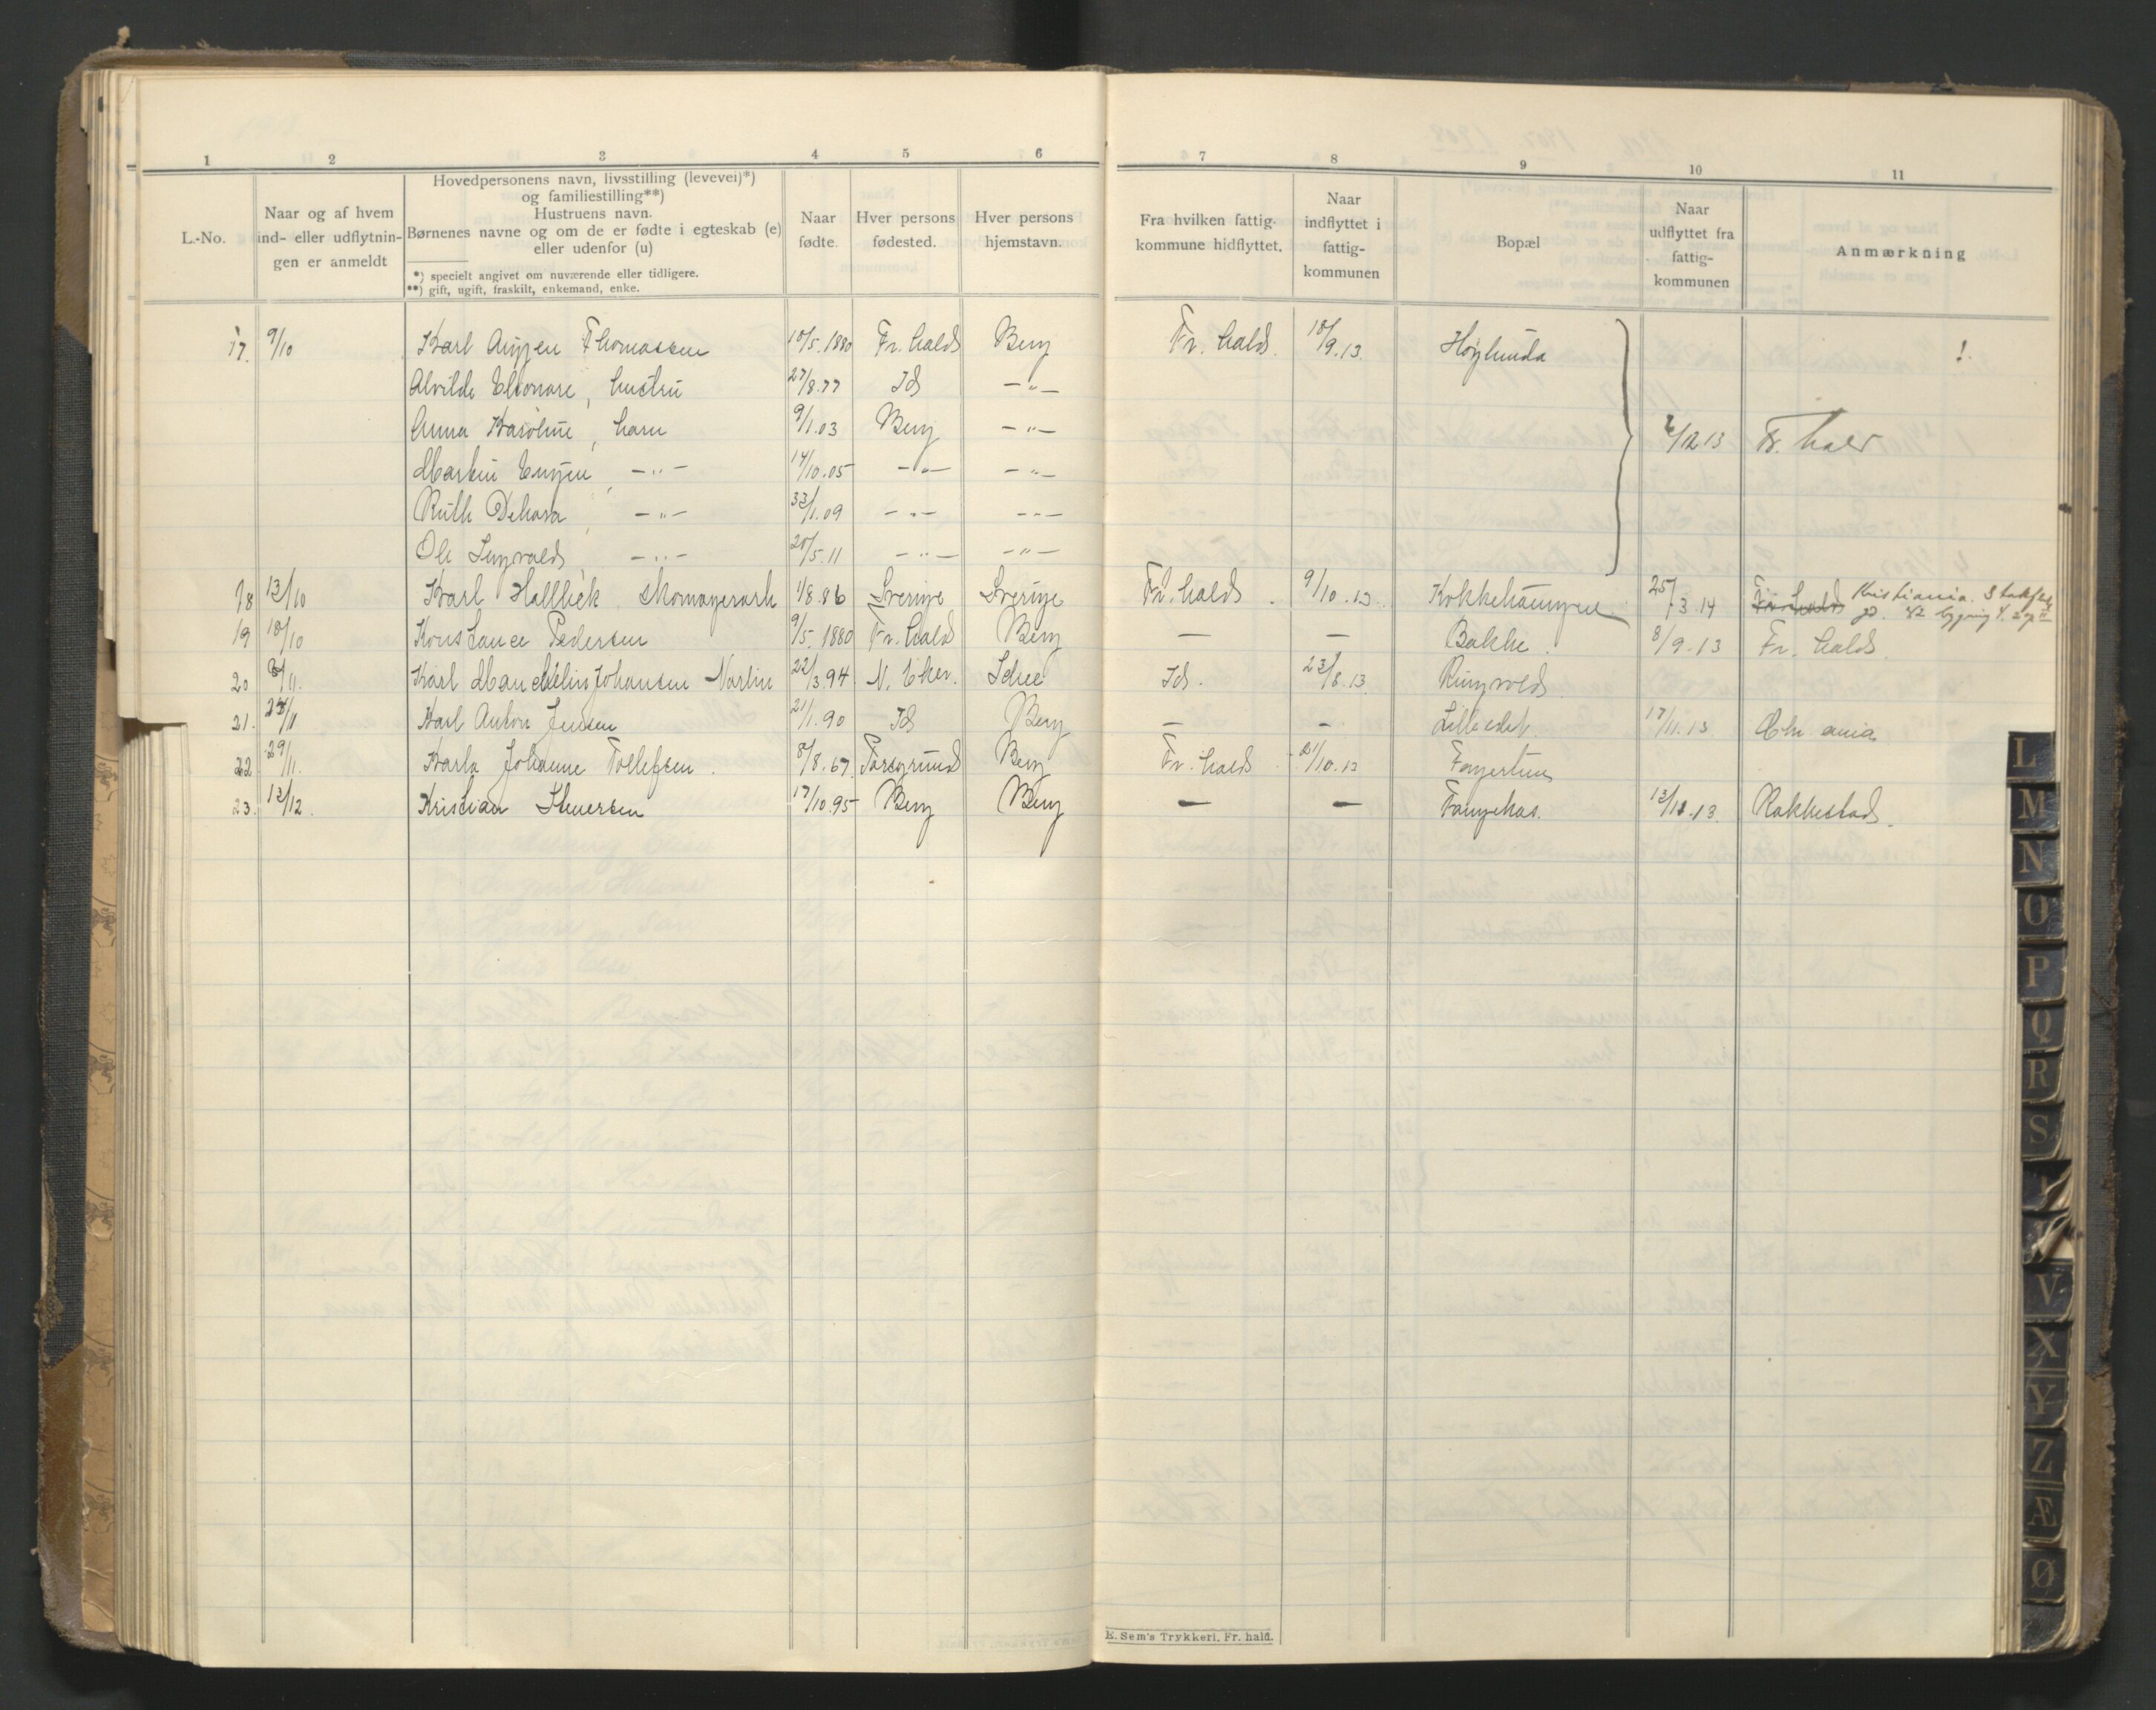 1 2 3 4 5 6 7 8 9 10 11
L.-No.
Naar og af hvem
ind- eller udflytnin-
gen er anmeldt
Hovedpersonens navn, livsstilling (levevei)*)
og familiestilling**)
Hustruens navn.
Børnenes navne og om de er fødte i egteskab (e)
eller udenfor (u)
*) specielt angivet om nuværende eller tidligere.
**) gift, ugift, fraskilt, enkemand, enke.
Naar
fødte.
Hver persons
fødested.
Hver persons
hjemstavn.
Fra hvilken fattig-
kommune hidflyttet.
Naar
indflyttet i
fattig-
kommunen
Bopæl
Naar
udflyttet fra
fattig-
kommunen
Anmærkning
17. 9/10 Karl Thomassen 10/5.1880 Fr. halds Berg Fr. halds. 18/9.13. Høglunda !
Alvilde Eleonore, hustru 27/8.77 Id -"-
Anna Karoline, barn 9/1.03 Berg -"- 12 13 Fr. hald
Martin -"- 14/10.05 -"- -"-
Ruth Debora -"- 1.09 -"- -"-
Ole Ingvald, -"- 28/5.11 -"- -"-
18 13/10 Karl Hallbek, skomagerarb 1/8.86 Sverige Sverige Fr. halds. 9/10.13. 25/3.14 Fr. halds Kristiania.
19 18/10 Konstance Pedersen 9/5.1880 Fr. hald Berg — — Bakke. 8/9.13 Fr. halds.
20 /11. Karl Johansen Norlin 22/3.94 N. Eker. Id. 23/8.13. Ringvold.
21. /11 Karl Anton Jensen 21/1.90 Id Berg — — Lilleedet. 17/11.13 Chr ania
22 29/11. Karla Johanne Tollefsen. 8/8.67. Porsgrund Berg Fr. halds. /10.13 Fagertun
23. 13/12. Kristian Stuersen 17/10.95 Berg Berg — — Tangehas. 13.13. Rakkestad.
E. Sem's Trykkeri, Fr. hald.
L
M
N
O
P
Q
R
S
V
X
Y
Z
Æ
Ø